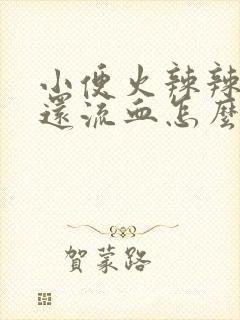 小便火辣辣
還流血怎麼
賀蒙路